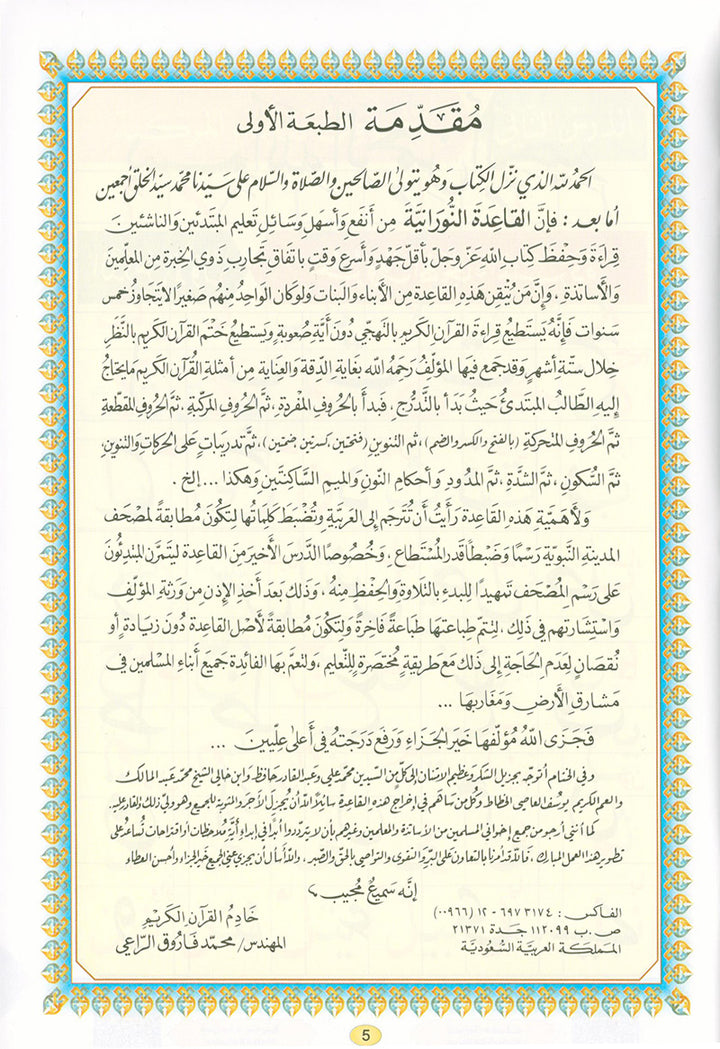 مُقَدِّمَة الطبعَة الأولى
الحمدُ للّه الذي نزّل الكِتابَ وَهُو يتولى الصّالحين والصّلاة والسّلام على سَيّدنا محمّد سيّد الخلق أجمعين
أما بعد : فإنَّ القاعِدَةَ النُّورَانيَّةَ مِن أنفَع وَأسهلِ وسَائلِ تعليمِ المُبتَدئين والنّاشئين
قِراءَةَ وَحِفظَ كِتابِ اللّه عَزّ وَجلّ بأقلّ جَهْدٍ وَأسرعِ وَقتٍ باتفاقِ تجَاربِ ذَوي الخِبرَة مِن المعَلّمينَ
وَالأسَاتذة ، وَإنَّ مَن يُتقِن هَذِهِ القاعِدة مِن الأبناءِ وَالبنات وَلوكان الوَاحِدُ مِنهُم صَغيرًا لا يَتجاوزُ خمس
سَنوات فَإنَّهُ يَستَطيعُ قراءَة القرآن الكَريم بالتهَجّي دُونَ أيَّةِ صُعوبةٍ وَيستَطيعُ خَتْمَ القرآن الكريم بالنَّظرِ
خِلال ستّة أشهرٍ وَقد جَمع فيهَا المؤلّفُ رَحِمَهُ اللّه بغايَةِ الدّقة وَالعِنايةِ مِن أمثلةِ القُرآن الكريم مَا يحتاجُ
إليهِ الطّالبُ المبتَدئُ حَيثُ بَدَأ بالتّدرُّج . فبدَأ بالحُروفِ المُفردَة ، ثمَّ الحرُوفِ المركّبةِ ، ثمَّ الحُروفِ المُقطّعةِ
ثمَّ الحُروفِ المتحركةِ (بالفتح والكسر والضم) ، ثم التنوينِ (فتحتين كسرتين ضمتين) ، ثمَّ تدريباتٍ عَلى الحركاتِ والتنوين
ثمَّ السُّكونِ ، ثمَّ الشدَّةِ ، ثمَّ المدُودِ وَأحكامِ النّون والميم السَّاكنتَين وَهكذا ... إلخ .
وَلأهَمّيَةِ هَذِهِ القَاعِدة رَأيتُ أن تُتَرجم إلى العَربيَّةِ وَتُضْبَط كَلِماتُها لِتَكُونَ مُطابقةً لمصْحَف
المدينةِ النَّبويَّة رَسْمًا وَضَبطًا قدرَ المُسْتَطاع ، وَخُصُوصًا الدَّرسَ الأخيرَ مِنَ القاعِدة ليَتمرَّن المبتَدِئُونَ
عَلى رَسْمِ المُصْحَف تَمهيدًا للبدءِ بالتّلاوَة والحِفظِ مِنهُ ، وَذلكَ بَعدَ أخذِ الإذنِ مِن وَرثةِ المؤلّف
وَاسْتِشارتهم في ذلك . لِتتمَّ طِباعَتها طِباعَةً فاخِرةً وَلِتَكونَ مُطابقةً لأصْل القاعِدة دُونَ زيَادةٍ أو
نُقصَانٍ لِعَدمِ الحَاجَةِ إلى ذلكَ مَعَ طَريقَةٍ مُختصَرَة لِلتَّعليم ، وَلتعُمَّ بها الفائدة جَميعَ أبناء المُسلمين في
مَشارق الأرض وَمَغاربهَا ...
فَجَزَى اللّهُ مُؤلّفهَا خَيرَ الجزَاءِ وَرَفع دَرَجتَهُ في أعلى علِّيينَ ...
وفي الختام أتوجّه بجزيل الشكر وعظيم الامتنان إلى كلٍّ من السيدين محمد علي وعبد القادر حافظ وابن خالي الشيخ محمد عبد المالك
والعم الكريم يوسُف العاصي الخطاط وكل من ساهم في إخراج هذه القاعدة سائلاً اللّه أن يُجزل الأجر والمثوبة للجميع وهو وليّ ذلك والقادر عليه.
كما أنني أرجو من جميع إخواني المسلمين من الأساتذة والمعلمين وغيرهم بأن لا يتردّدوا أبدًا في إبداء أيَّة مُلاحظات أو اقتراحات تُساعدُ على
تطوير هذا العمل المبارك ، فاللّه قد أمرنا بالتعاون على البرِّ والتقوى والتواصي بالحق والصّبر . واللّه أسأل أن يجزي عنّي الجميع خير الجزاء وأحسن العطاء
إنّه سَميعٌ مُجيب
الفاكس : ٦٩٧٣١٧٤ - ١٢ (٠٠٩٦٦)
ص . ب ١١٢٠٩٩ جدة ٢١٣٧١
المملكة العربية السُّعودية
خَادِمُ القرآن الكَريم
المهندس/ محمّد فَارُوق الرَّاعِي
5